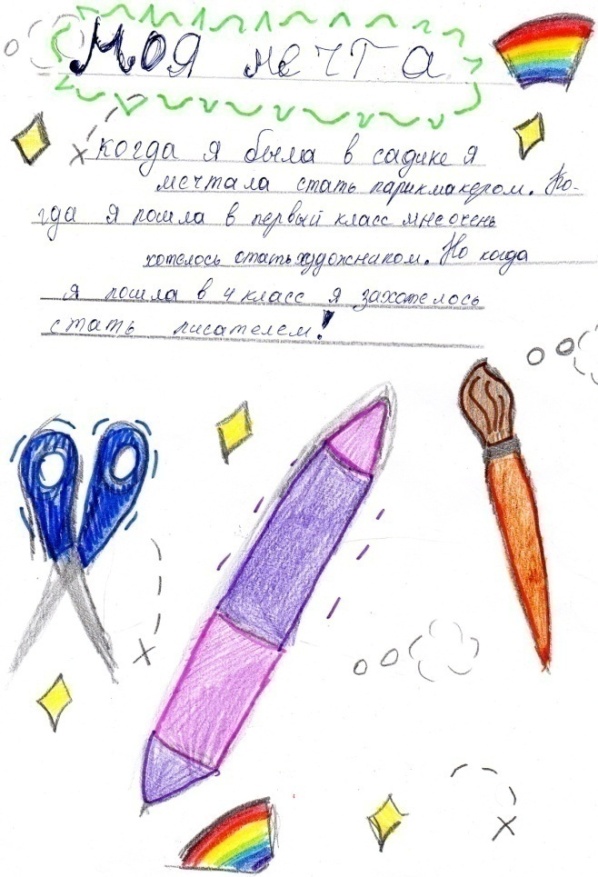 Моя мечта
Когда я была в садике я
мечтала стать парикмакером. Ко-
гда я пошла в первый класс мне очень
хотелось стать художником. Но когда
я пошла в 4 класс я захотелось
стать писателем!